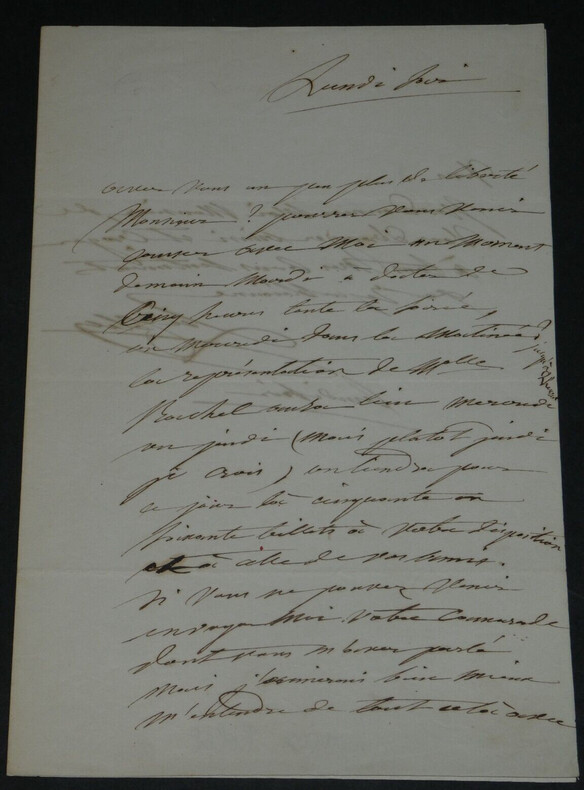 Lundi soir
avez vous un peu plus de liberté
Monsieur ? pourrez vous venir
causer avec moi un moment
demain Mardi à dater de
Cinq heures toute la soirée,
ou Mercredi dans la Matinée ?
la représentation de Melle
Rachel aura lieu mercredi
ou jeudi (mais plutot jeudi
je crois) on tiendra pour
ce jour là cinquante ou
soixante billets à votre disposition
et à celle de vos amis.
Si vous ne pouvez venir
envoyez moi votre Camarade
dont vous m'avez parlé
mais j'aimerais bien mieux
m'entendre de tout cela avec